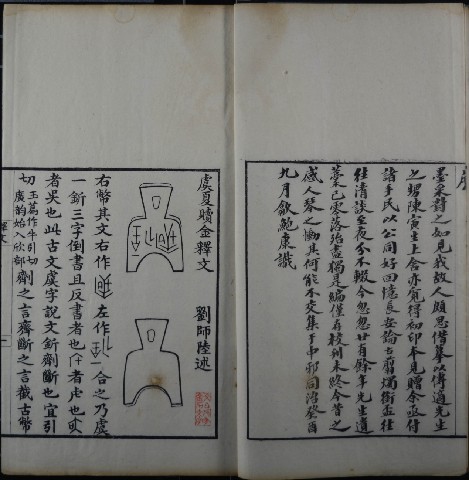 序
墨采對之如見我故人頗思借摹以傳適先生
之甥陳寅生上舍亦宛得初印本見贈余亟付
諸手民以公同好回憶長安論古剪燭銜盃往
往清談至夜分不輟今忽忽廿有餘年先生遺
藁已零落殆盡獨是編僅存校刊未終今昔之
感人琴之慟其何能不交集于中邪同治癸酉
九月歙鮑康識
虞夏贖金釋文
劉師陸述
右幣其文右作
左作
合之乃虞
一釿三字倒書且反書者也
者虍也
者吳也此古文虞字說文釿劑斷也宜引
切玉篇作牛引切廣韵始入欣部劑之言齊斷之言截古幣
釋文
一